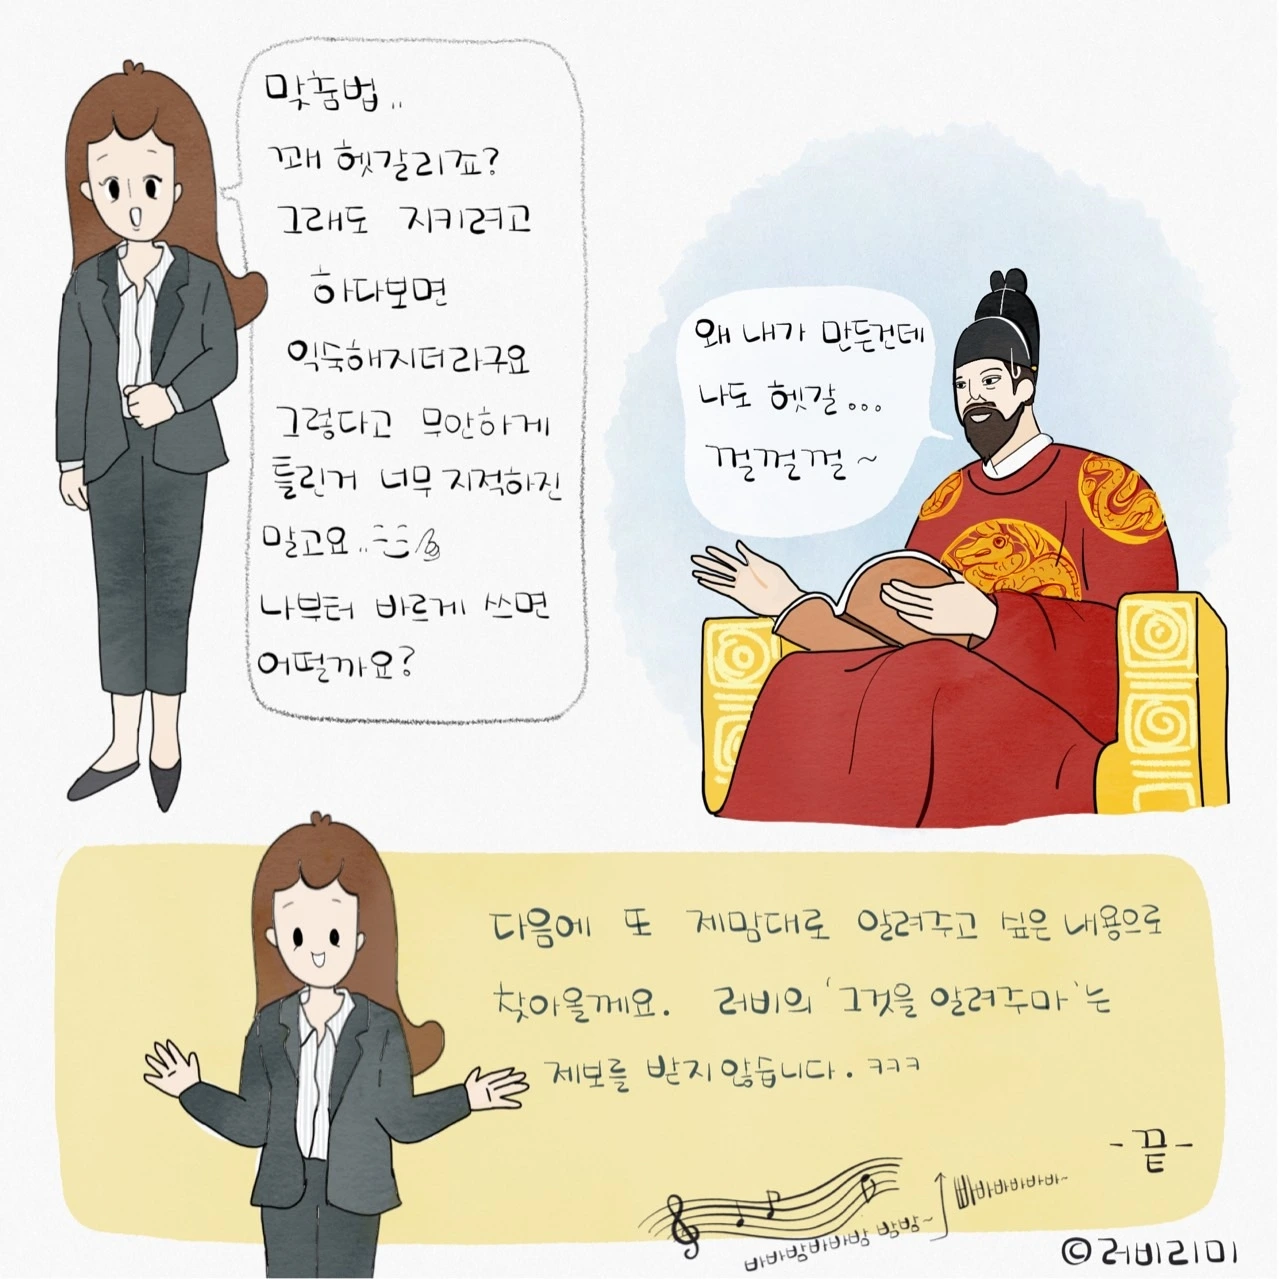 맞춤법..
꽤 헷갈리죠?
그래도 지키려고
하다보면
익숙해지더라구요
그렇다고 무안하게
틀린거 너무 지적하진
말고요..
나부터 바르게 쓰면
어떨까요?
왜 내가 만든건데
나도 헷갈...
껄껄껄~
다음에 또 제맘대로 알려주고 싶은 내용으로
찾아올께요. 러비의 '그것을 알려주마'는
제보를 받지않습니다. ㅋㅋㅋ
-끝-
바바밤바바밤 밤밤~
빠바바바바바~
©러비리미